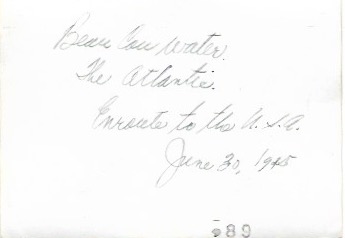 Beau Cou water.
The Atlantic.
Enroute to the U.S.A.
June 30, 1945
89